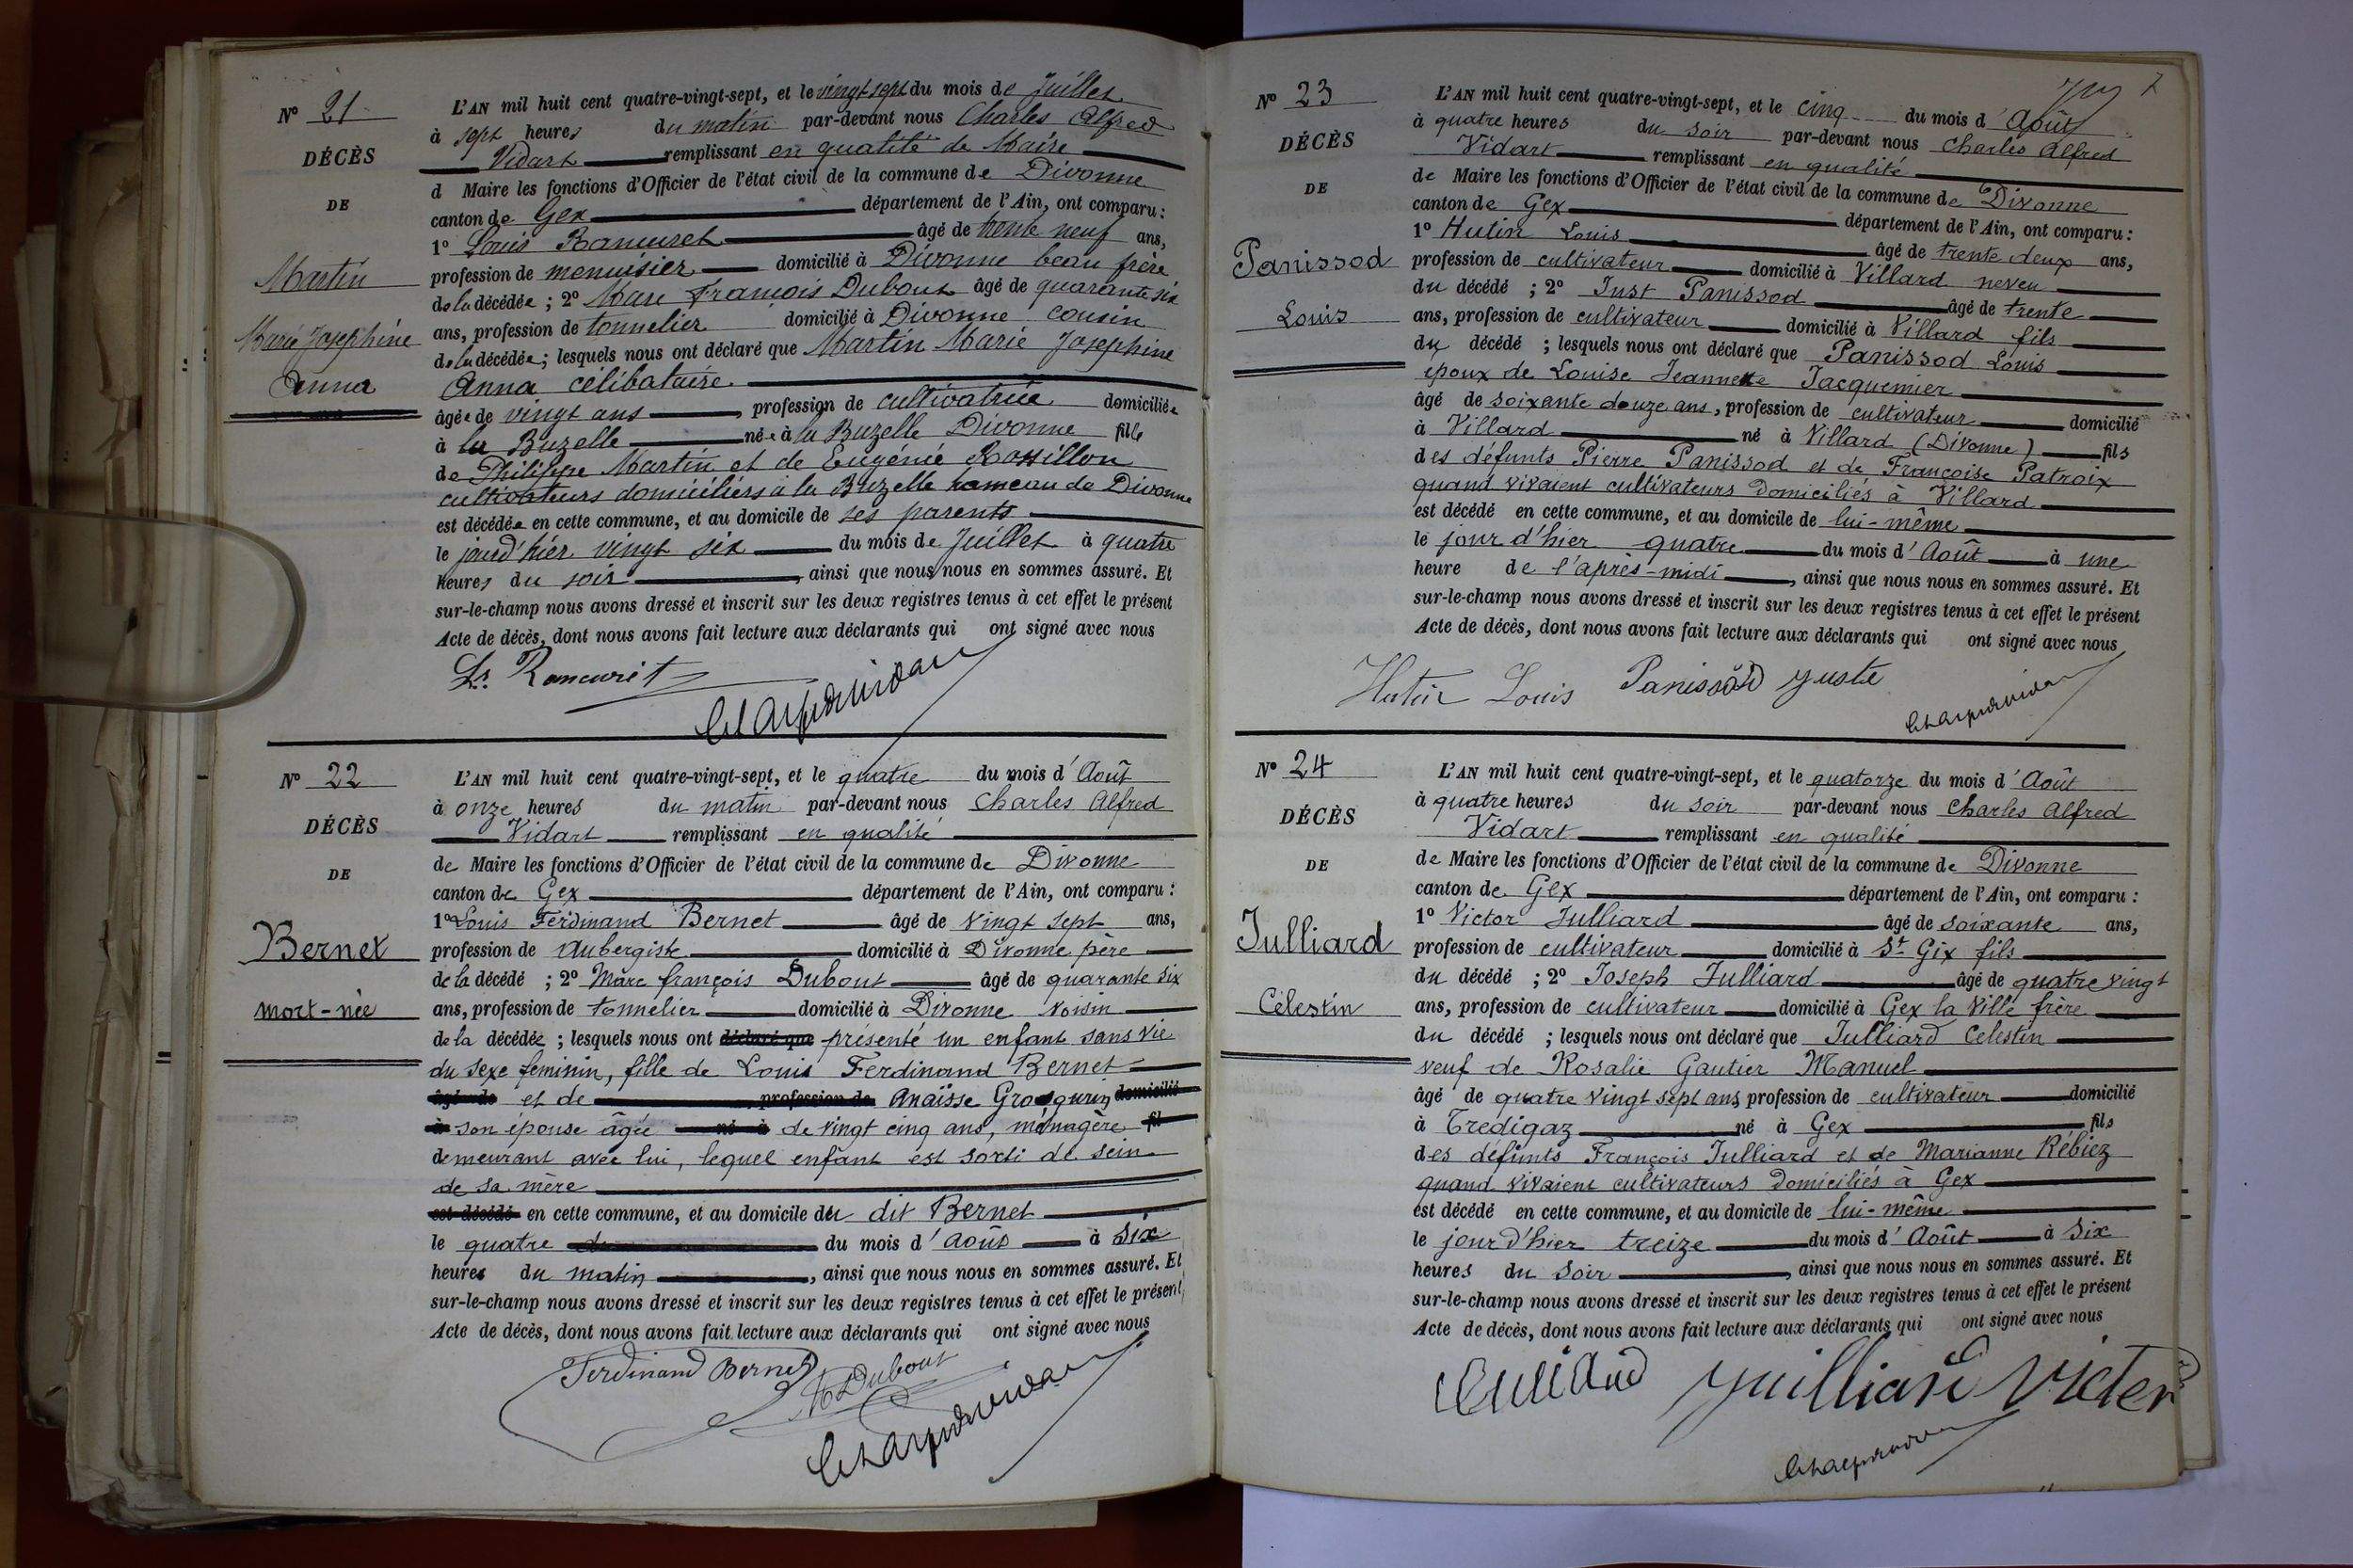 N° 21
DÉCÈS
DE
Martin
Marie Josephine
Anna
L'AN mil huit cent quatre-vingt-sept, et le vingt sept du mois de Juillet
à sept heures du matin par-devant nous Charles Alfred
Vidart remplissant en qualité de Maire
d Maire les fonctions d'Officier de l'état civil de la commune de Divonne
canton de Gex département de l'Ain, ont comparu :
1° Louis Rancuret âgé de trente neuf ans,
profession de menuisier domicilié à Divonne beau frère
de la décédée ; 2° Marc François Dubout âgé de quarante six
ans, profession de tonnelier domicilié à Divonne cousin
de la décédée ; lesquels nous ont déclaré que Martin Marie Josephine
Anna célibataire
âgée de vingt ans, profession de cultivatrice domiciliée
à la Buzelle née à la Buzelle Divonne fille
de Philippe Martin et de Eugénie Rossillon
cultivateurs domiciliés à la Buzelle hameau de Divonne
est décédée en cette commune, et au domicile de ses parents
le jour d'hier vingt six du mois de Juillet à quatre
heures du soir, ainsi que nous nous en sommes assuré. Et
sur-le-champ nous avons dressé et inscrit sur les deux registres tenus à cet effet le présent
Acte de décès, dont nous avons fait lecture aux déclarants qui ont signé avec nous
Ls. Rancuret
N° 22
DÉCÈS
DE
Bernet
mort-née
L'AN mil huit cent quatre-vingt-sept, et le quatre du mois d'Août
à onze heures du matin par-devant nous Charles Alfred
Vidart remplissant en qualité
de Maire les fonctions d'Officier de l'état civil de la commune de Divonne
canton de Gex département de l'Ain, ont comparu :
1° Louis Ferdinand Bernet âgé de vingt sept ans,
profession de Aubergiste domicilié à Divonne père
de la décédé ; 2° Marc françois Dubout âgé de quarante six
ans, profession de tonnelier domicilié à Divonne voisin
de la décédée ; lesquels nous ont déclaré que présenté un enfant sans vie
du sexe feminin, fille de Louis Ferdinand Bernet
âgé de et de profession de Anaïsse Grosgurin domicilié
à son épouse âgée né à de vingt cinq ans, ménagère fil
demeurant avec lui, lequel enfant est sorti de sein
de sa mère
est décédé en cette commune, et au domicile du dit Bernet
le quatre du mois d'août à six
heures du matin, ainsi que nous nous en sommes assuré. Et
sur-le-champ nous avons dressé et inscrit sur les deux registres tenus à cet effet le présent
Acte de décès, dont nous avons fait lecture aux déclarants qui ont signé avec nous
Ferdinand Bernet
M Dubout
7
N° 23
DÉCÈS
DE
Panissod
Louis
L'AN mil huit cent quatre-vingt-sept, et le cinq du mois d'Août
à quatre heures du soir par-devant nous Charles Alfred
Vidart remplissant en qualité
de Maire les fonctions d'Officier de l'état civil de la commune de Divonne
canton de Gex département de l'Ain, ont comparu :
1° Hutin Louis âgé de trente deux ans,
profession de cultivateur domicilié à Villard neveu
du décédé ; 2° Just Panissod âgé de trente
ans, profession de cultivateur domicilié à Villard fils
du décédé ; lesquels nous ont déclaré que Panissod Louis
epoux de Louise Jeannette Jacquemier
âgé de soixante douze ans, profession de cultivateur domicilié
à Villard né à Villard (Divonne) fils
des défunts Pierre Panissod et de Françoise Patroix
quand vivaient cultivateurs domiciliés à Villard
est décédé en cette commune, et au domicile de lui-même
le jour d'hier quatre du mois d'Août à une
heure de l'après-midi, ainsi que nous nous en sommes assuré. Et
sur-le-champ nous avons dressé et inscrit sur les deux registres tenus à cet effet le présent
Acte de décès, dont nous avons fait lecture aux déclarants qui ont signé avec nous
Hutin Louis Panissod Juste
N° 24
DÉCÈS
DE
Julliard
Célestin
L'AN mil huit cent quatre-vingt-sept, et le quatorze du mois d'Août
à quatre heures du soir par-devant nous Charles Alfred
Vidart remplissant en qualité
de Maire les fonctions d'Officier de l'état civil de la commune de Divonne
canton de Gex département de l'Ain, ont comparu :
1° Victor Julliard âgé de soixante ans,
profession de cultivateur domicilié à St Gix fils
du décédé ; 2° Joseph Julliard âgé de quatre vingt
ans, profession de cultivateur domicilié à Gex la Ville frère
du décédé ; lesquels nous ont déclaré que Julliard Celestin
veuf de Rosalie Gautier Manuel
âgé de quatre vingt sept ans profession de cultivateur domicilié
à Tredigaz né à Gex fils
des défunts François Julliard et de Marianne Rébiez
quand vivaient cultivateurs domiciliés à Gex
est décédé en cette commune, et au domicile de lui-même
le jour d'hier treize du mois d'Août à six
heures du soir, ainsi que nous nous en sommes assuré. Et
sur-le-champ nous avons dressé et inscrit sur les deux registres tenus à cet effet le présent
Acte de décès, dont nous avons fait lecture aux déclarants qui ont signé avec nous
Juilliard Victor